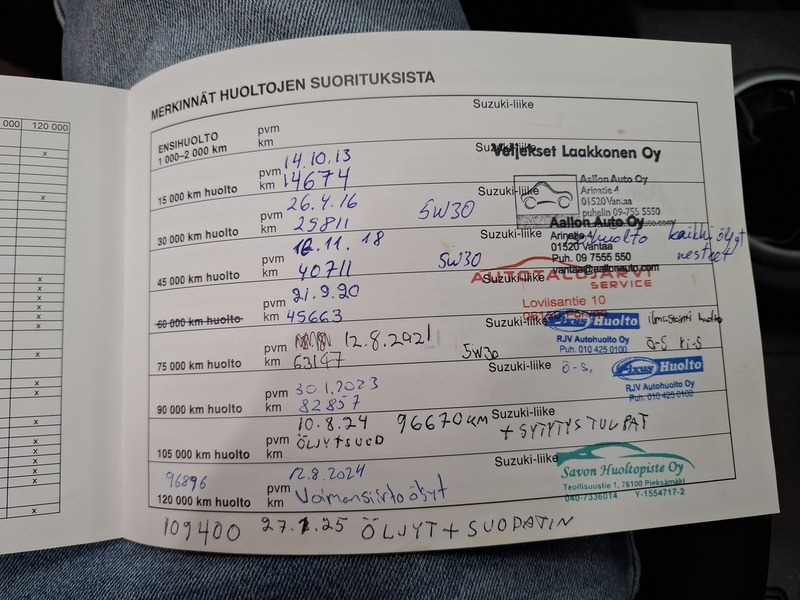 000 120 000
MERKINNÄT HUOLTOJEN SUORITUKSISTA
ENSIHUOLTO
1 000–2 000 km
pvm
km
Suzuki-liike
Veljekset Laakkonen Oy
15 000 km huolto
pvm 14.10.13
km 14674
Suzuki-liike
Aallon Auto Oy
Arinatie 4
01520 Vantaa
puhelin 09-755 5550
30 000 km huolto
pvm 26.4.16
km 25811
5W30
Suzuki-liike
Aallon Auto Oy
Arinatie 4
01520 Vantaa
Puh. 09 7555 550
vantaa@aallonauto.com
huolto kaikki öljyt
nesteet
45 000 km huolto
pvm 12.11.18
km 40711
5W30
Suzuki-liike
AUTOTALOJÄRVI
SERVICE
Loviisantie 10
60 000 km huolto
pvm 21.9.20
km 45663
Suzuki-liike
Fixus Huolto
RJV Autohuolto Oy
Puh. 010 425 0100
ilmastointi huolto
ö-s ri-s
75 000 km huolto
pvm 12.8.2921
km 63147
5W30
Suzuki-liike
Fixus Huolto
RJV Autohuolto Oy
Puh. 010 425 0100
ö-s,
90 000 km huolto
pvm 30.1.2023
km 82857
Suzuki-liike
105 000 km huolto
pvm 10.8.24 96670 KM
km ÖLJYT+SUOD
+ SYTYTYSTULPAT
Suzuki-liike
Savon Huoltopiste Oy
Teollisuustie 1, 76100 Pieksämäki
040-7336014 Y-1554717-2
96896
120 000 km huolto
pvm 12.8.2024
km Voimansiirto öljyt
109400 27.1.25 ÖLJYT + SUODATIN